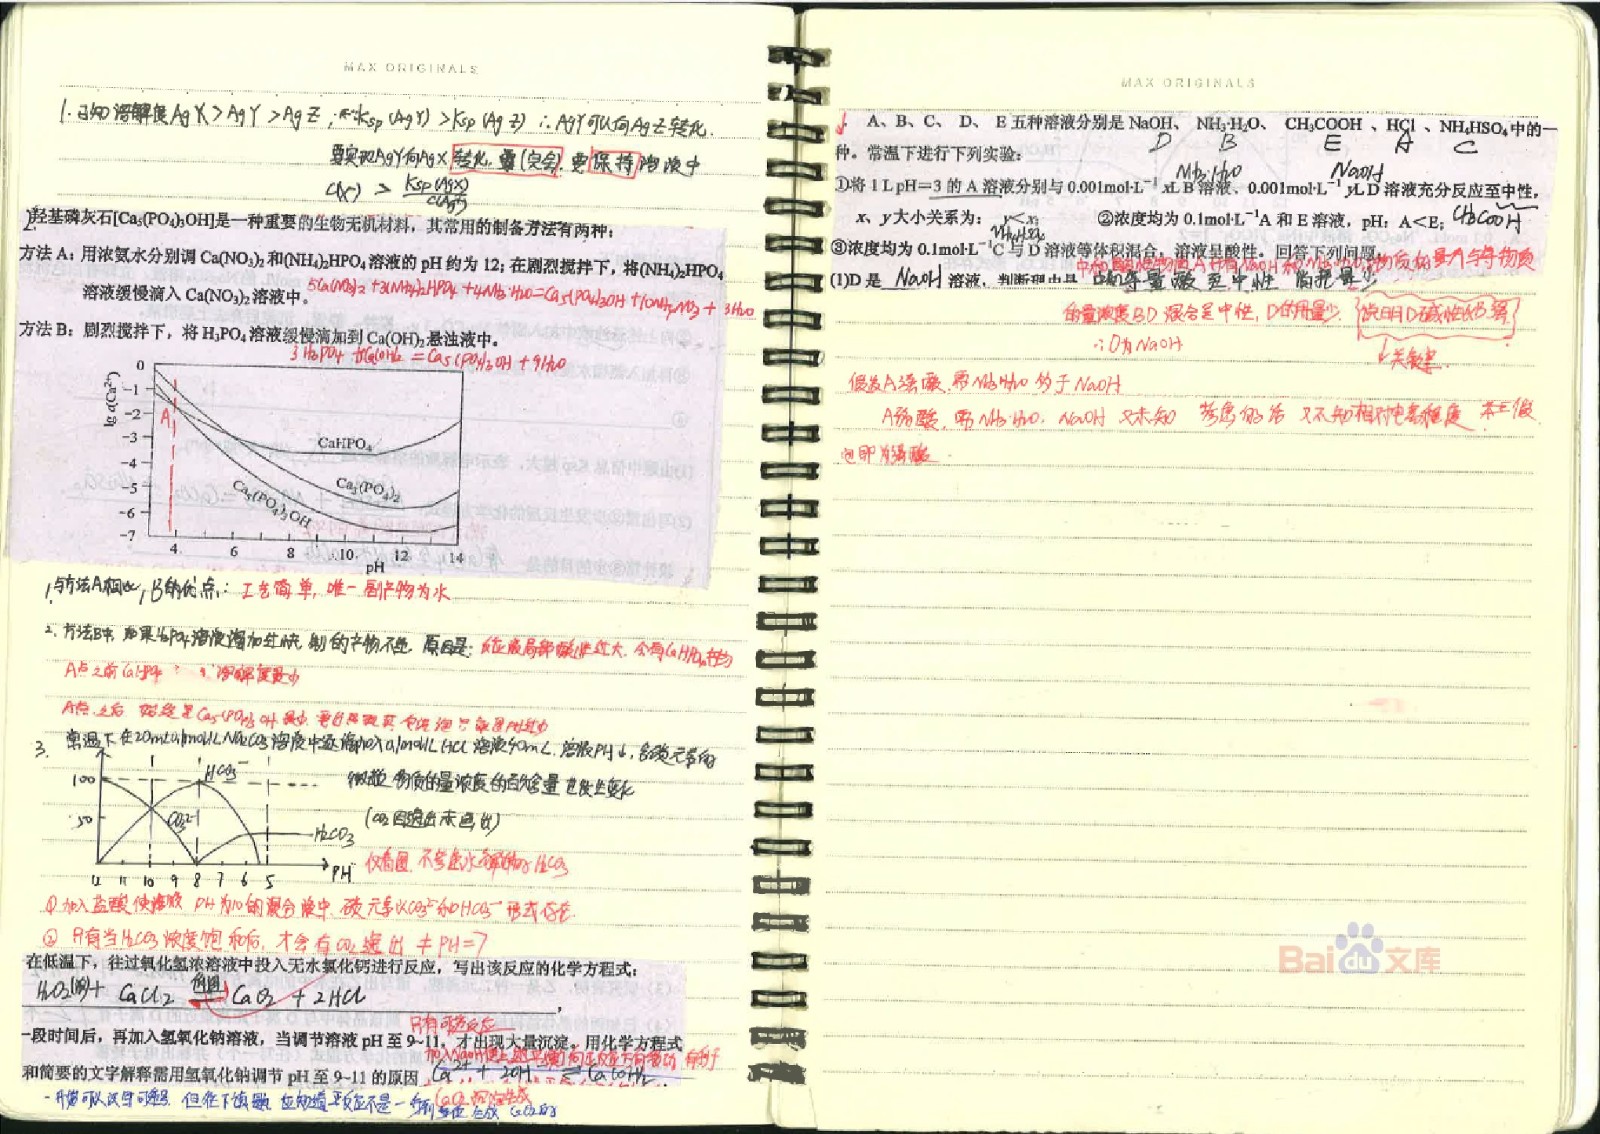 MAX ORIGINALS
1.已知溶解度AgX>AgY>AgZ; Ksp(AgY)>Ksp(AgZ) ∴AgY可以向AgZ转化.
要实现AgY向AgX转化, 要保持溶液中
c(X⁻) > Ksp(AgX)/c(Ag⁺)
羟基磷灰石[Ca₅(PO₄)₃OH]是一种重要的生物无机材料，其常用的制备方法有两种：
方法 A：用浓氨水分别调 Ca(NO₃)₂ 和(NH₄)₂HPO₄ 溶液的 pH 约为 12；在剧烈搅拌下，将(NH₄)₂HPO₄
溶液缓慢滴入 Ca(NO₃)₂ 溶液中。
5Ca(NO₃)₂+3(NH₄)₂HPO₄+4NH₃·H₂O=Ca₅(PO₄)₃OH+10NH₄NO₃+3H₂O
方法 B：剧烈搅拌下，将 H₃PO₄ 溶液缓慢滴加到 Ca(OH)₂ 悬浊液中。
3H₃PO₄+5Ca(OH)₂=Ca₅(PO₄)₃OH+9H₂O
lg c(Ca²⁺)
0
-1
-2
-3
-4
-5
-6
-7
A
CaHPO₄
Ca₃(PO₄)₂
Ca₅(PO₄)₃OH
4 6 8 10 12 14
pH
1.与方法A相比,B的优点: 工艺简单,唯一副产物为水
2.方法B中,如果H₃PO₄溶液滴加过快,制的产物不纯,原因是: 反应液局部酸性过大,会有CaHPO₄产生
A点之前CaHPO₄ 溶解度最小
A点之后 Ca₅(PO₄)₃OH 最小
3. 常温下在20mL0.1mol/L Na₂CO₃溶液中逐滴加入0.1mol/L HCl溶液40mL,溶液PH↓,含碳元素的
微粒物质的量浓度的百分含量也发生变化
(CO₂因逸出未画出)
100
50
HCO₃⁻
CO₃²⁻
H₂CO₃
12 11 10 9 8 7 6 5
PH
仅看图,不考虑水解的H₂CO₃
①加入盐酸使溶液PH为10的混合液中,碳元素以CO₃²⁻和HCO₃⁻形式存在.
②只有当H₂CO₃浓度饱和后,才会有CO₂逸出≠PH=7
在低温下，往过氧化氢浓溶液中投入无水氯化钙进行反应，写出该反应的化学方程式：
H₂O₂(浓)+CaCl₂ ⇌ CaO₂+2HCl
只有可逆反应
一段时间后，再加入氢氧化钠溶液，当调节溶液 pH 至 9~11，才出现大量沉淀。用化学方程式
加入NaOH使上述平衡向正反应方向移动
和简要的文字解释需用氢氧化钠调节 pH 至 9~11 的原因 Ca²⁺+2OH⁻⇌Ca(OH)₂
CaO₂沉淀生成
MAX ORIGINALS
A、B、C、D、E 五种溶液分别是 NaOH、NH₃·H₂O、CH₃COOH、HCl、NH₄HSO₄ 中的一
D B E A C
种。常温下进行下列实验：
NH₃·H₂O NaOH
①将 1 L pH＝3 的 A 溶液分别与 0.001mol·L⁻¹ xL B 溶液、0.001mol·L⁻¹ yL D 溶液充分反应至中性，
x、y 大小关系为：y＜x； ②浓度均为 0.1mol·L⁻¹A 和 E 溶液，pH：A＜E；
CH₃COOH
③浓度均为 0.1mol·L⁻¹C 与 D 溶液等体积混合，溶液呈酸性。回答下列问题：
(1)D 是 NaOH 溶液，判断理由是
的量浓度BD混合呈中性,D的用量少 说明D碱性较强
∴D为NaOH
关键
假定A强酸,而NH₃·H₂O弱于NaOH
A弱酸,而NH₃·H₂O,NaOH又未知
Baidu文库